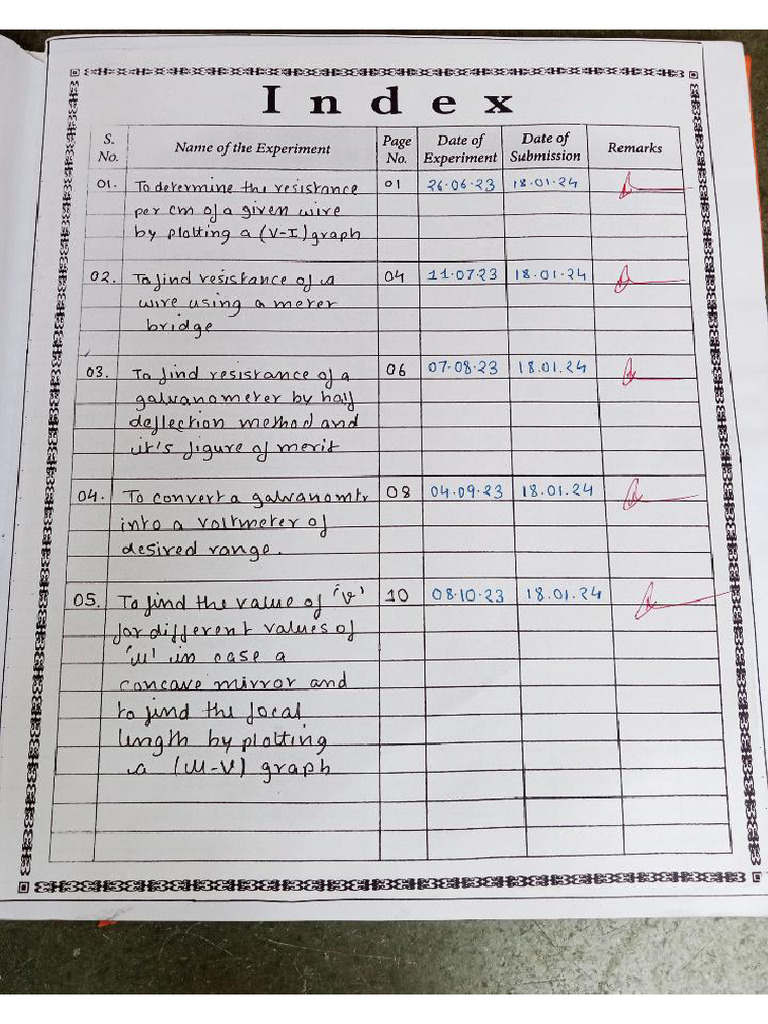 Index
S. No. Name of the Experiment Page No. Date of Experiment Date of Submission Remarks
01. To determine the resistance 01 26.06.23 18.01.24
per cm of a given wire
by plotting a (V-I) graph
02. To find resistance of a 04 11.07.23 18.01.24
wire using a meter
bridge
03. To find resistance of a 06 07.08.23 18.01.24
galvanometer by half
deflection method and
it's figure of merit
04. To convert a galvanomtr 08 04.09.23 18.01.24
into a voltmeter of
desired range.
05. To find the value of 'v' 10 08.10.23 18.01.24
for different values of
'u' in case a
concave mirror and
to find the focal
length by plotting
a (u-v) graph